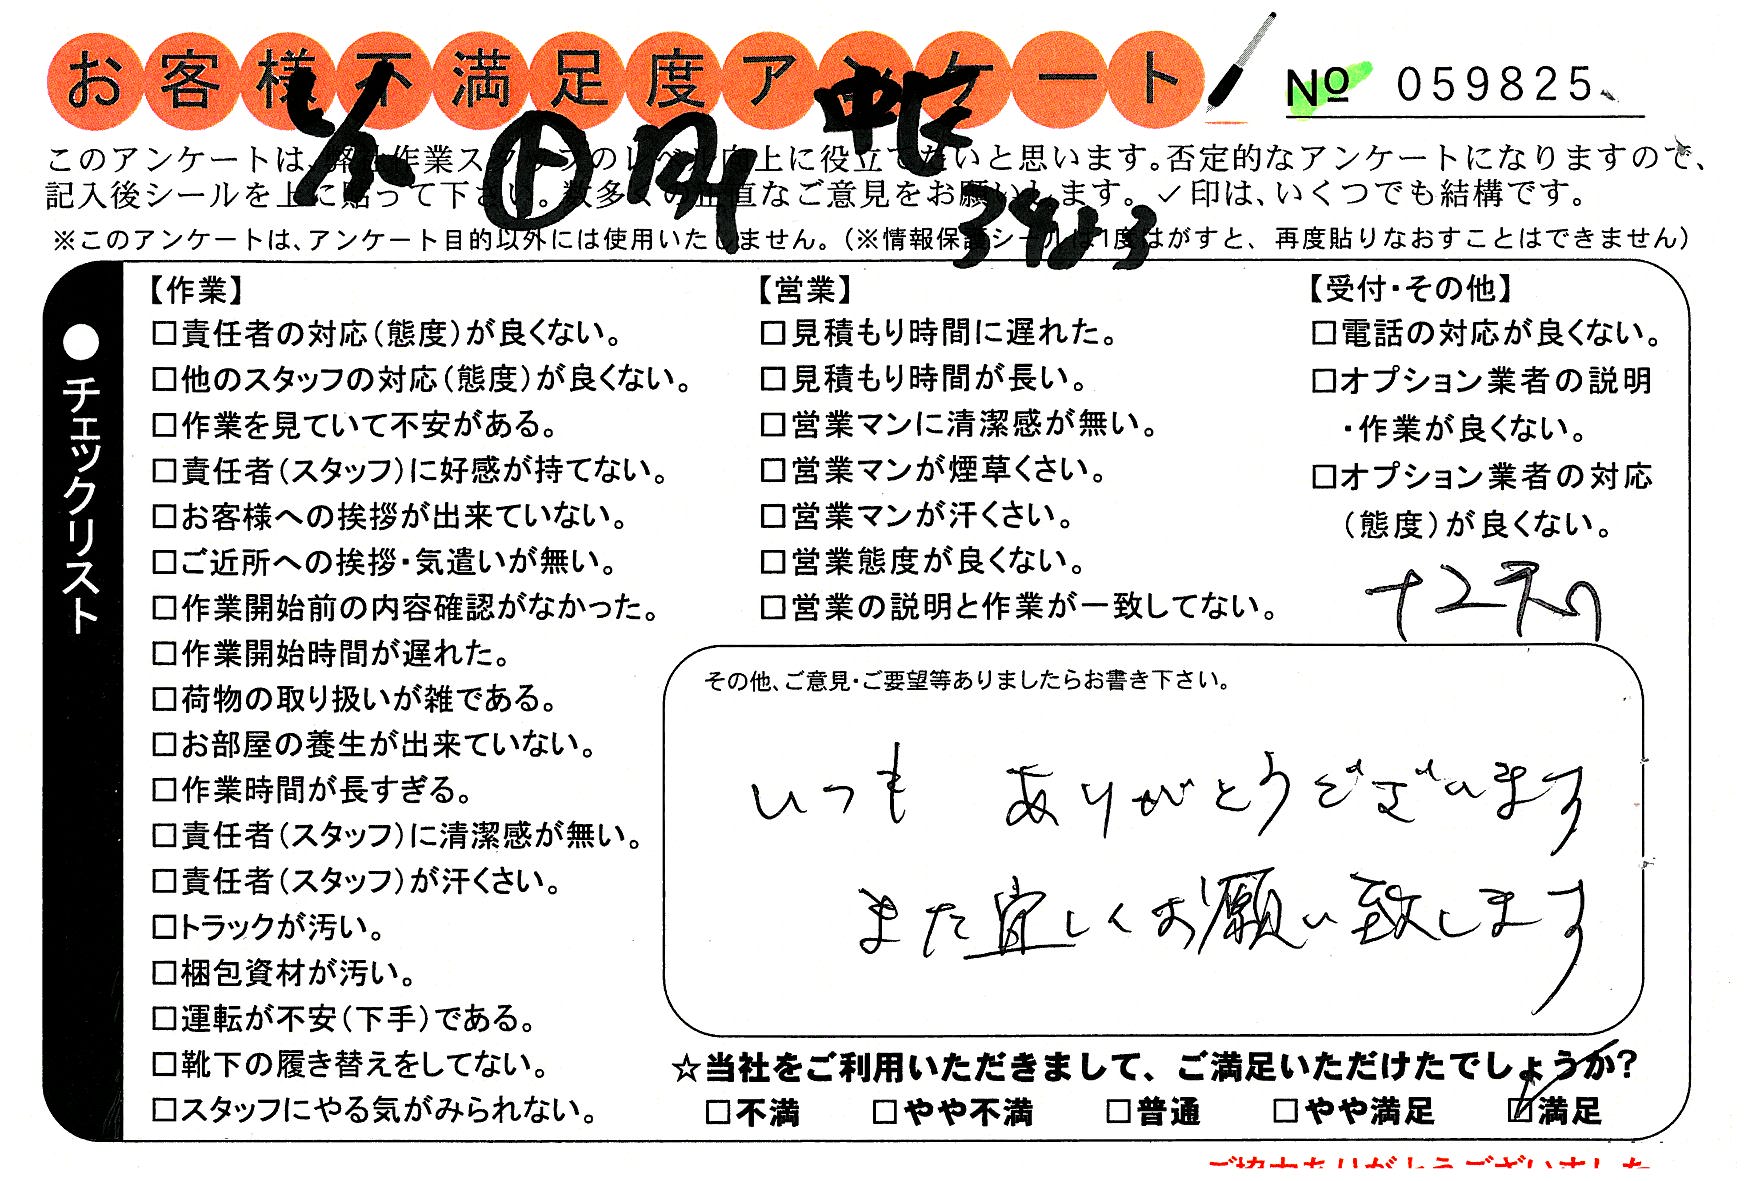 お客様不満足度アンケート
№ 059825
このアンケートは、弊社作業スタッフのレベル向上に役立てたいと思います。否定的なアンケートになりますので、
記入後シールを上に貼って下さい。数多くの正直なご意見をお願いします。✓印は、いくつでも結構です。
※このアンケートは、アンケート目的以外には使用いたしません。(※情報保護シールは1度はがすと、再度貼りなおすことはできません)
●チェックリスト
【作業】
□責任者の対応(態度)が良くない。
□他のスタッフの対応(態度)が良くない。
□作業を見ていて不安がある。
□責任者(スタッフ)に好感が持てない。
□お客様への挨拶が出来ていない。
□ご近所への挨拶・気遣いが無い。
□作業開始前の内容確認がなかった。
□作業開始時間が遅れた。
□荷物の取り扱いが雑である。
□お部屋の養生が出来ていない。
□作業時間が長すぎる。
□責任者(スタッフ)に清潔感が無い。
□責任者(スタッフ)が汗くさい。
□トラックが汚い。
□梱包資材が汚い。
□運転が不安(下手)である。
□靴下の履き替えをしてない。
□スタッフにやる気がみられない。
【営業】
□見積もり時間に遅れた。
□見積もり時間が長い。
□営業マンに清潔感が無い。
□営業マンが煙草くさい。
□営業マンが汗くさい。
□営業態度が良くない。
□営業の説明と作業が一致してない。
【受付・その他】
□電話の対応が良くない。
□オプション業者の説明
・作業が良くない。
□オプション業者の対応
(態度)が良くない。
その他、ご意見・ご要望等ありましたらお書き下さい。
いつも ありがとうございます
また宜しくお願い致します
☆当社をご利用いただきまして、ご満足いただけたでしょうか?
□不満 □やや不満 □普通 □やや満足 ☑満足
ご協力ありがとうございました